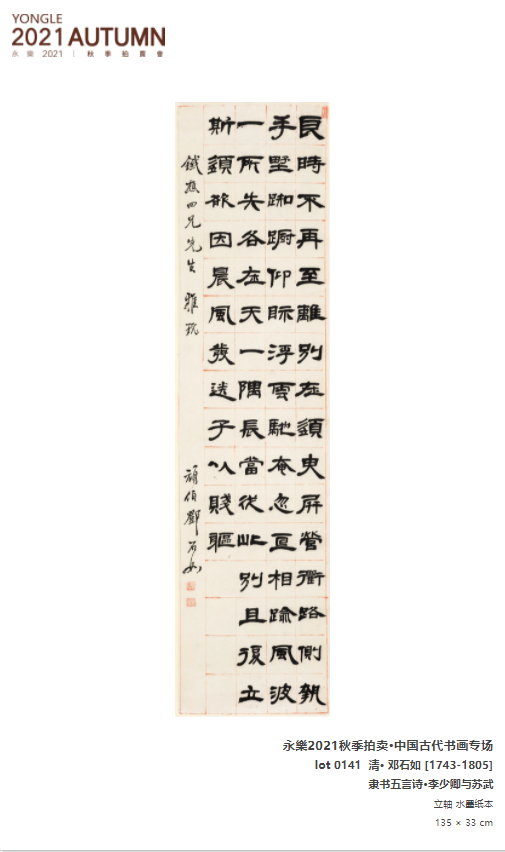 YONGLE
2021 AUTUMN
永樂 2021 | 秋季拍賣會
良時不再至離別在須臾屏營衢路側執
手墅踟躕仰眎浮雲馳奄忽互相踰風波
一所失各在天一隅長當從此別且復立
斯須欲因晨風發送子以賤軀
鐵四兄先生 雅玩
頑伯鄧石如
永樂2021秋季拍卖•中国古代书画专场
lot 0141 清• 邓石如 [1743-1805]
隶书五言诗•李少卿与苏武
立轴 水墨纸本
135 × 33 cm